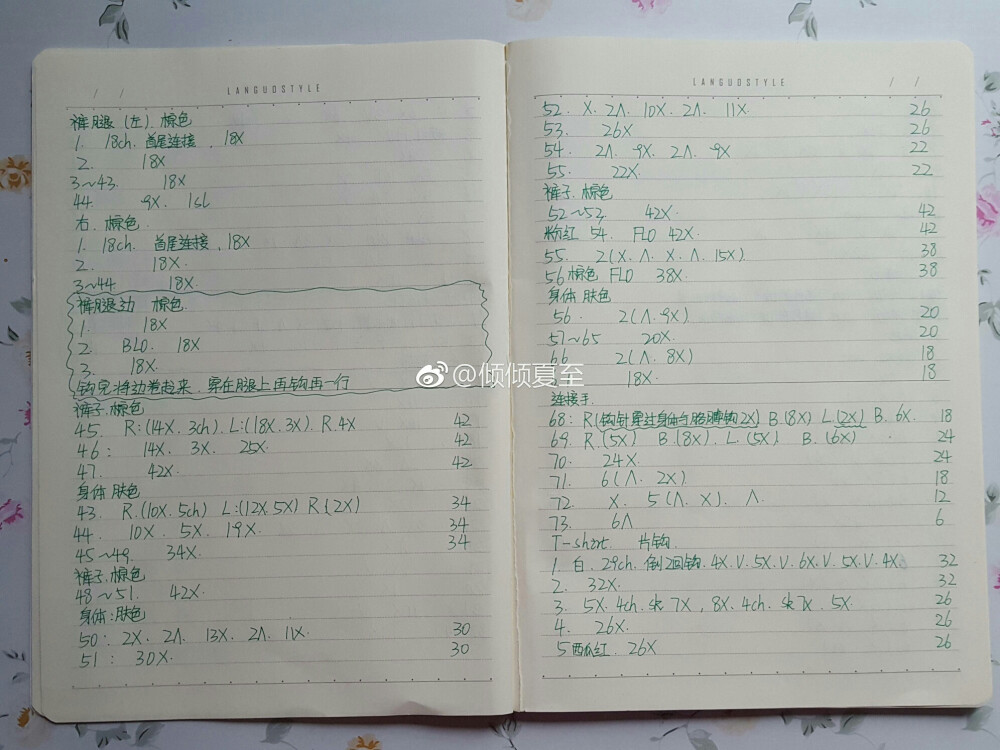 LANGUOSTYLE
裤腿(左).棕色
1. 18ch. 首尾连接, 18X
2. 18X
3~43. 18X
44. 9X. 1sl
右.棕色.
1. 18ch. 首尾连接, 18X
2. 18X.
3~44 18X.
裤腿边 棕色.
1. 18X.
2. BLO. 18X
3. 18X.
钩完将边卷起来.穿在腿上再钩再一行
裤子.棕色
45. R:(14X. 3ch). L:(18X. 3X). R.4X 42
46: 14X. 3X. 25X. 42
47. 42X. 42
身体 肤色
43. R.(10X. 5ch) L:(12X. 5X) R.(2X) 34
44. 10X. 5X. 19X. 34
45~49. 34X. 34
裤子.棕色
48~51. 42X.
身体:肤色
50: 2X. 2Λ. 13X. 2Λ. 11X. 30
51: 30X. 30
LANGUOSTYLE
52. X. 2Λ. 10X. 2Λ. 11X. 26
53. 26X 26
54. 2Λ. 9X. 2Λ. 9X 22
55. 22X. 22
裤子.棕色
52~53. 42X. 42
粉红 54. FLO 42X. 42
55. 2(X. Λ. X. Λ. 15X) 38
56 棕色 FLO 38X. 38
身体 肤色
56. 2(Λ. 9X) 20
57~65 20X. 20
66 2(Λ. 8X) 18
18X. 18
连接手.
68: R(钩针穿过身体与胳膊钩2X) B.(8X) L(2X) B. 6X. 18
69. R.(5X) B.(8X). L.(5X) B.(6X) 24
70. 24X. 24
71. 6(Λ. 2X) 18
72. X. 5(Λ. X). Λ. 12
73. 6Λ 6
T-short. 片钩.
1. 白. 29ch. 倒2回钩. 4X. V. 5X. V. 6X. V. 5X. V. 4X. 32
2. 32X. 32
3. 5X. 4ch. sk 7X, 8X. 4ch. sk 7X. 5X. 26
4. 26X. 26
5 西瓜红. 26X 26
@倾倾夏至